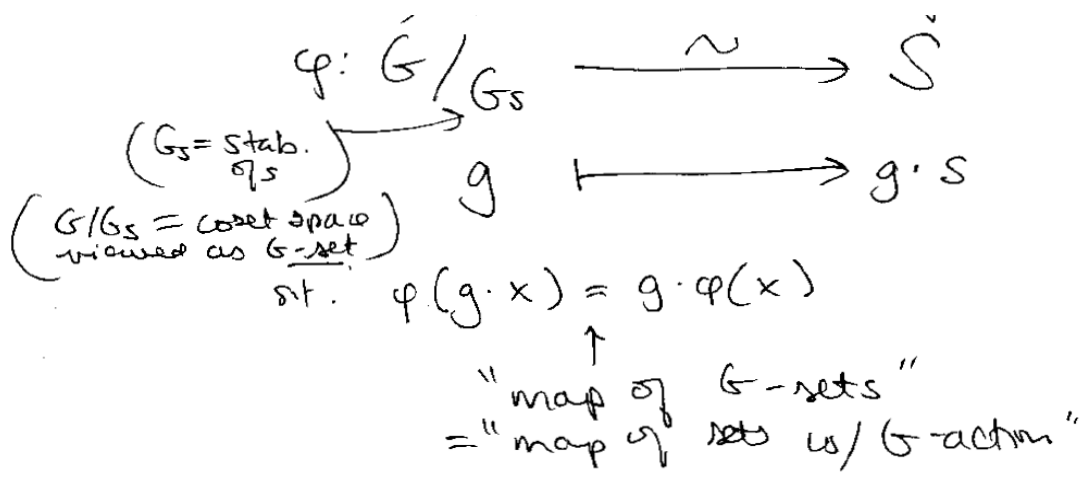 φ: G/G_s ⟶^∼ S
(G_s = stab. of s)
g ⟼ g · s
(G/G_s = coset space
viewed as G-set)
s.t. φ(g · x) = g · φ(x)
↑
"map of G-sets"
= "map of sets w/ G-action"